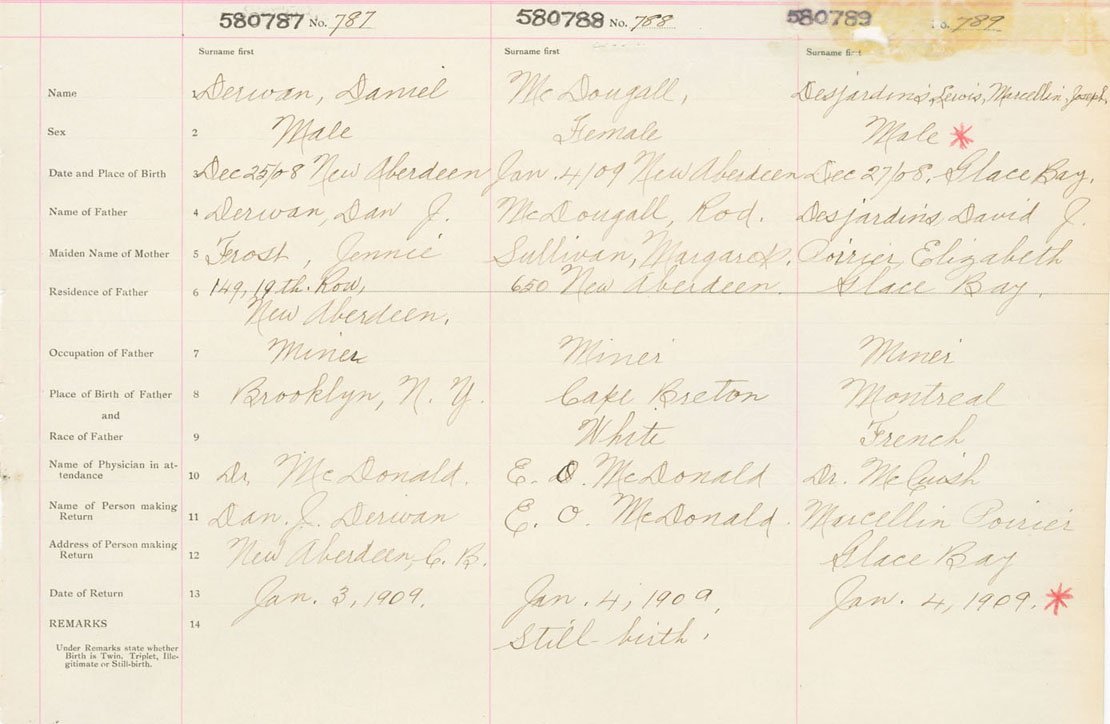 580787 No. 787 580788 No. 788 580789 No. 789
Surname first Surname first Surname first
Name 1 Derwan, Daniel McDougall, Desjardins, Lewis, Marcellin, Joseph,
Sex 2 Male Female Male *
Date and Place of Birth 3 Dec 25/08 New Aberdeen Jan. 4/09 New Aberdeen Dec 27/08, Glace Bay.
Name of Father 4 Derwan, Dan J. McDougall, Rod. Desjardins, David J.
Maiden Name of Mother 5 Frost, Jennie Sullivan, Margaret. Poirier, Elizabeth
Residence of Father 6 149, 19th. Row, 650 New Aberdeen. Glace Bay.
New Aberdeen.
Occupation of Father 7 Miner Miner Miner
Place of Birth of Father 8 Brooklyn, N. Y. Cape Breton Montreal
and
Race of Father 9 White French
Name of Physician in at-
tendance 10 Dr. McDonald. E. O. McDonald Dr. McCuish
Name of Person making
Return 11 Dan. J. Derwan E. O. McDonald. Marcellin Poirier
Address of Person making
Return 12 New Aberdeen, C. B. Glace Bay
Date of Return 13 Jan. 3, 1909. Jan. 4, 1909. Jan. 4, 1909. *
REMARKS 14 Still-birth.
Under Remarks state whether
Birth is Twin, Triplet, Ille-
gitimate or Still-birth.